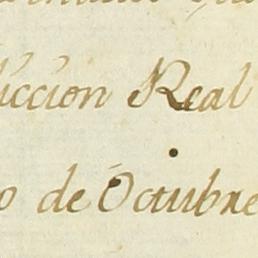 iccion Real
o de Octubre